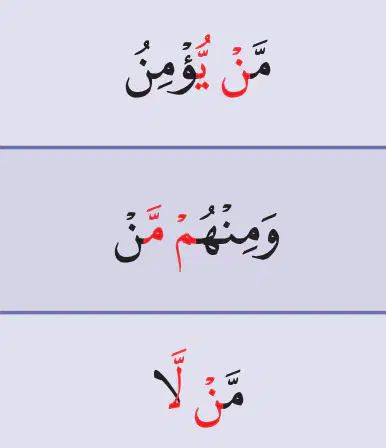 مَّنْ يُّؤْمِنُ
وَمِنْهُمْ مَّنْ
مَّنْ لَّا